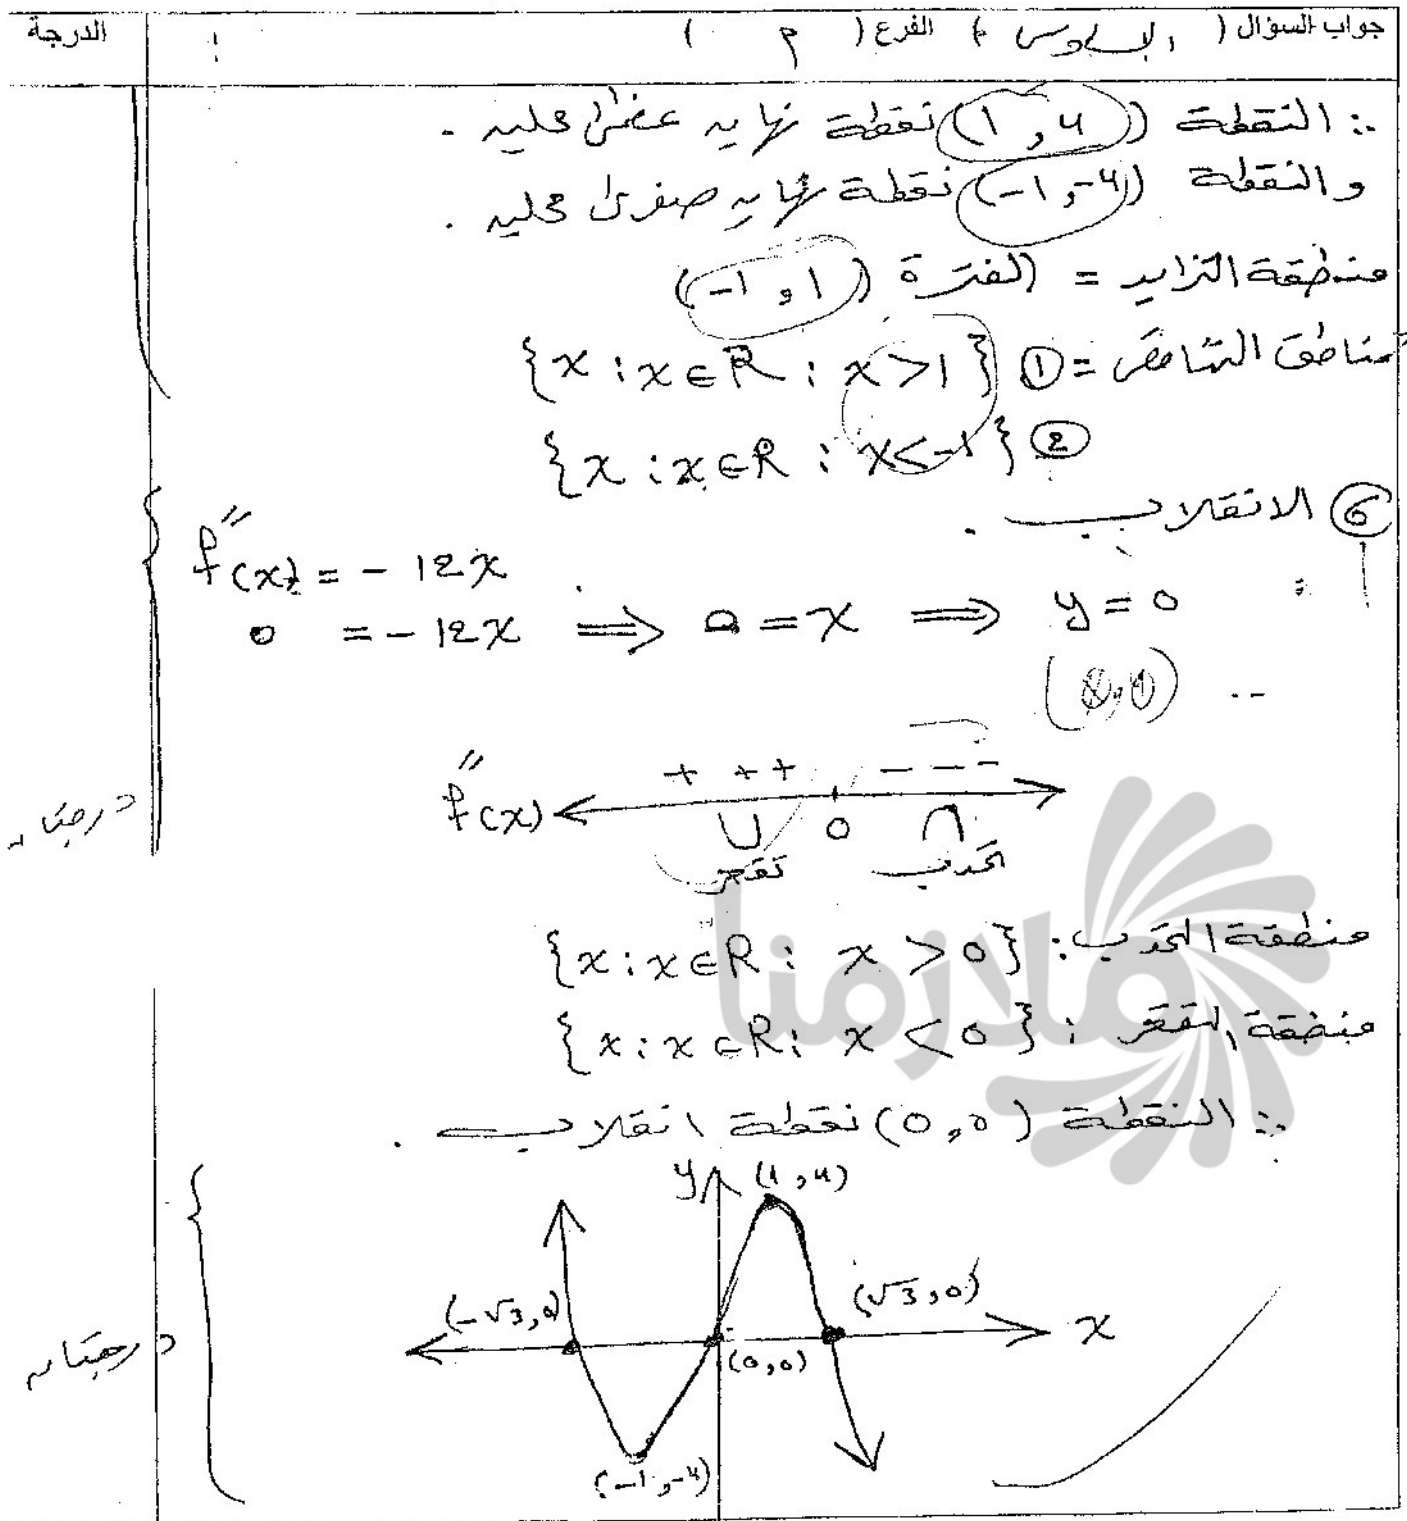 جواب السؤال ( السادس ) الفرع ( )
الدرجة
∴ النقطة (1 , 4) نقطة نهاية عظمى محلية .
و النقطة (-1 , -4) نقطة نهاية صغرى محلية .
منطقة التزايد = الفترة (-1 , 1)
مناطق التناقص = ① {x : x∈R : x>1}
② {x : x∈R : x<-1}
⑥ الانقلاب .
f″(x) = - 12x
0 = - 12x ⟹ 0 = x ⟹ y = 0
f″(x) + + + - - -
0
تقعر تحدب
درجتان
منطقة التحدب : {x : x∈R : x > 0}
منطقة التقعر : {x : x∈R : x < 0}
∴ النقطة (0 , 0) نقطة انقلاب .
y (1 , 4)
(-√3 , 0) (√3 , 0)
(0 , 0) x
(-1 , -4)
درجتان
ملازمنا